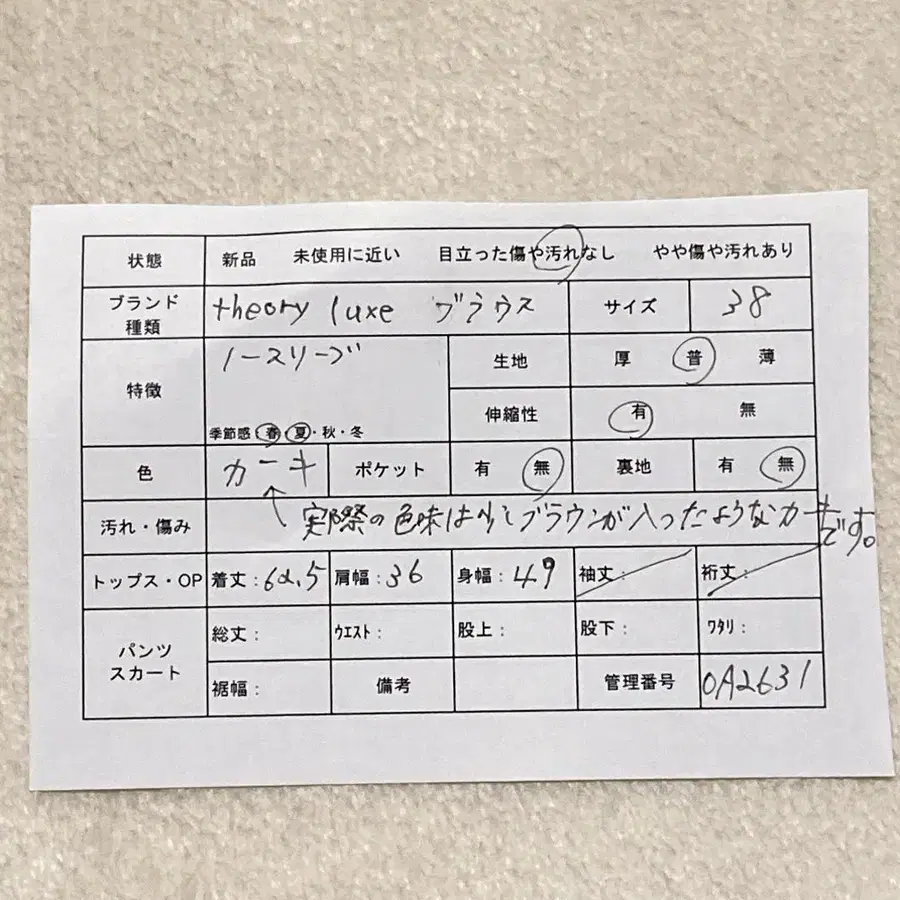 状態 新品 未使用に近い 目立った傷や汚れなし やや傷や汚れあり
ブランド 種類 theory luxe ブラウス サイズ 38
特徴 ノースリーブ 生地 厚 普 薄
季節感 春・夏・秋・冬 伸縮性 有 無
色 カーキ ポケット 有 無 裏地 有 無
汚れ・傷み 実際の色味は少しブラウンが入ったようなカーキです。
トップス・OP 着丈:62.5 肩幅:36 身幅:49 袖丈: 裄丈:
パンツ スカート 総丈: ウエスト: 股上: 股下: ワタリ:
裾幅: 備考 管理番号 0A2631